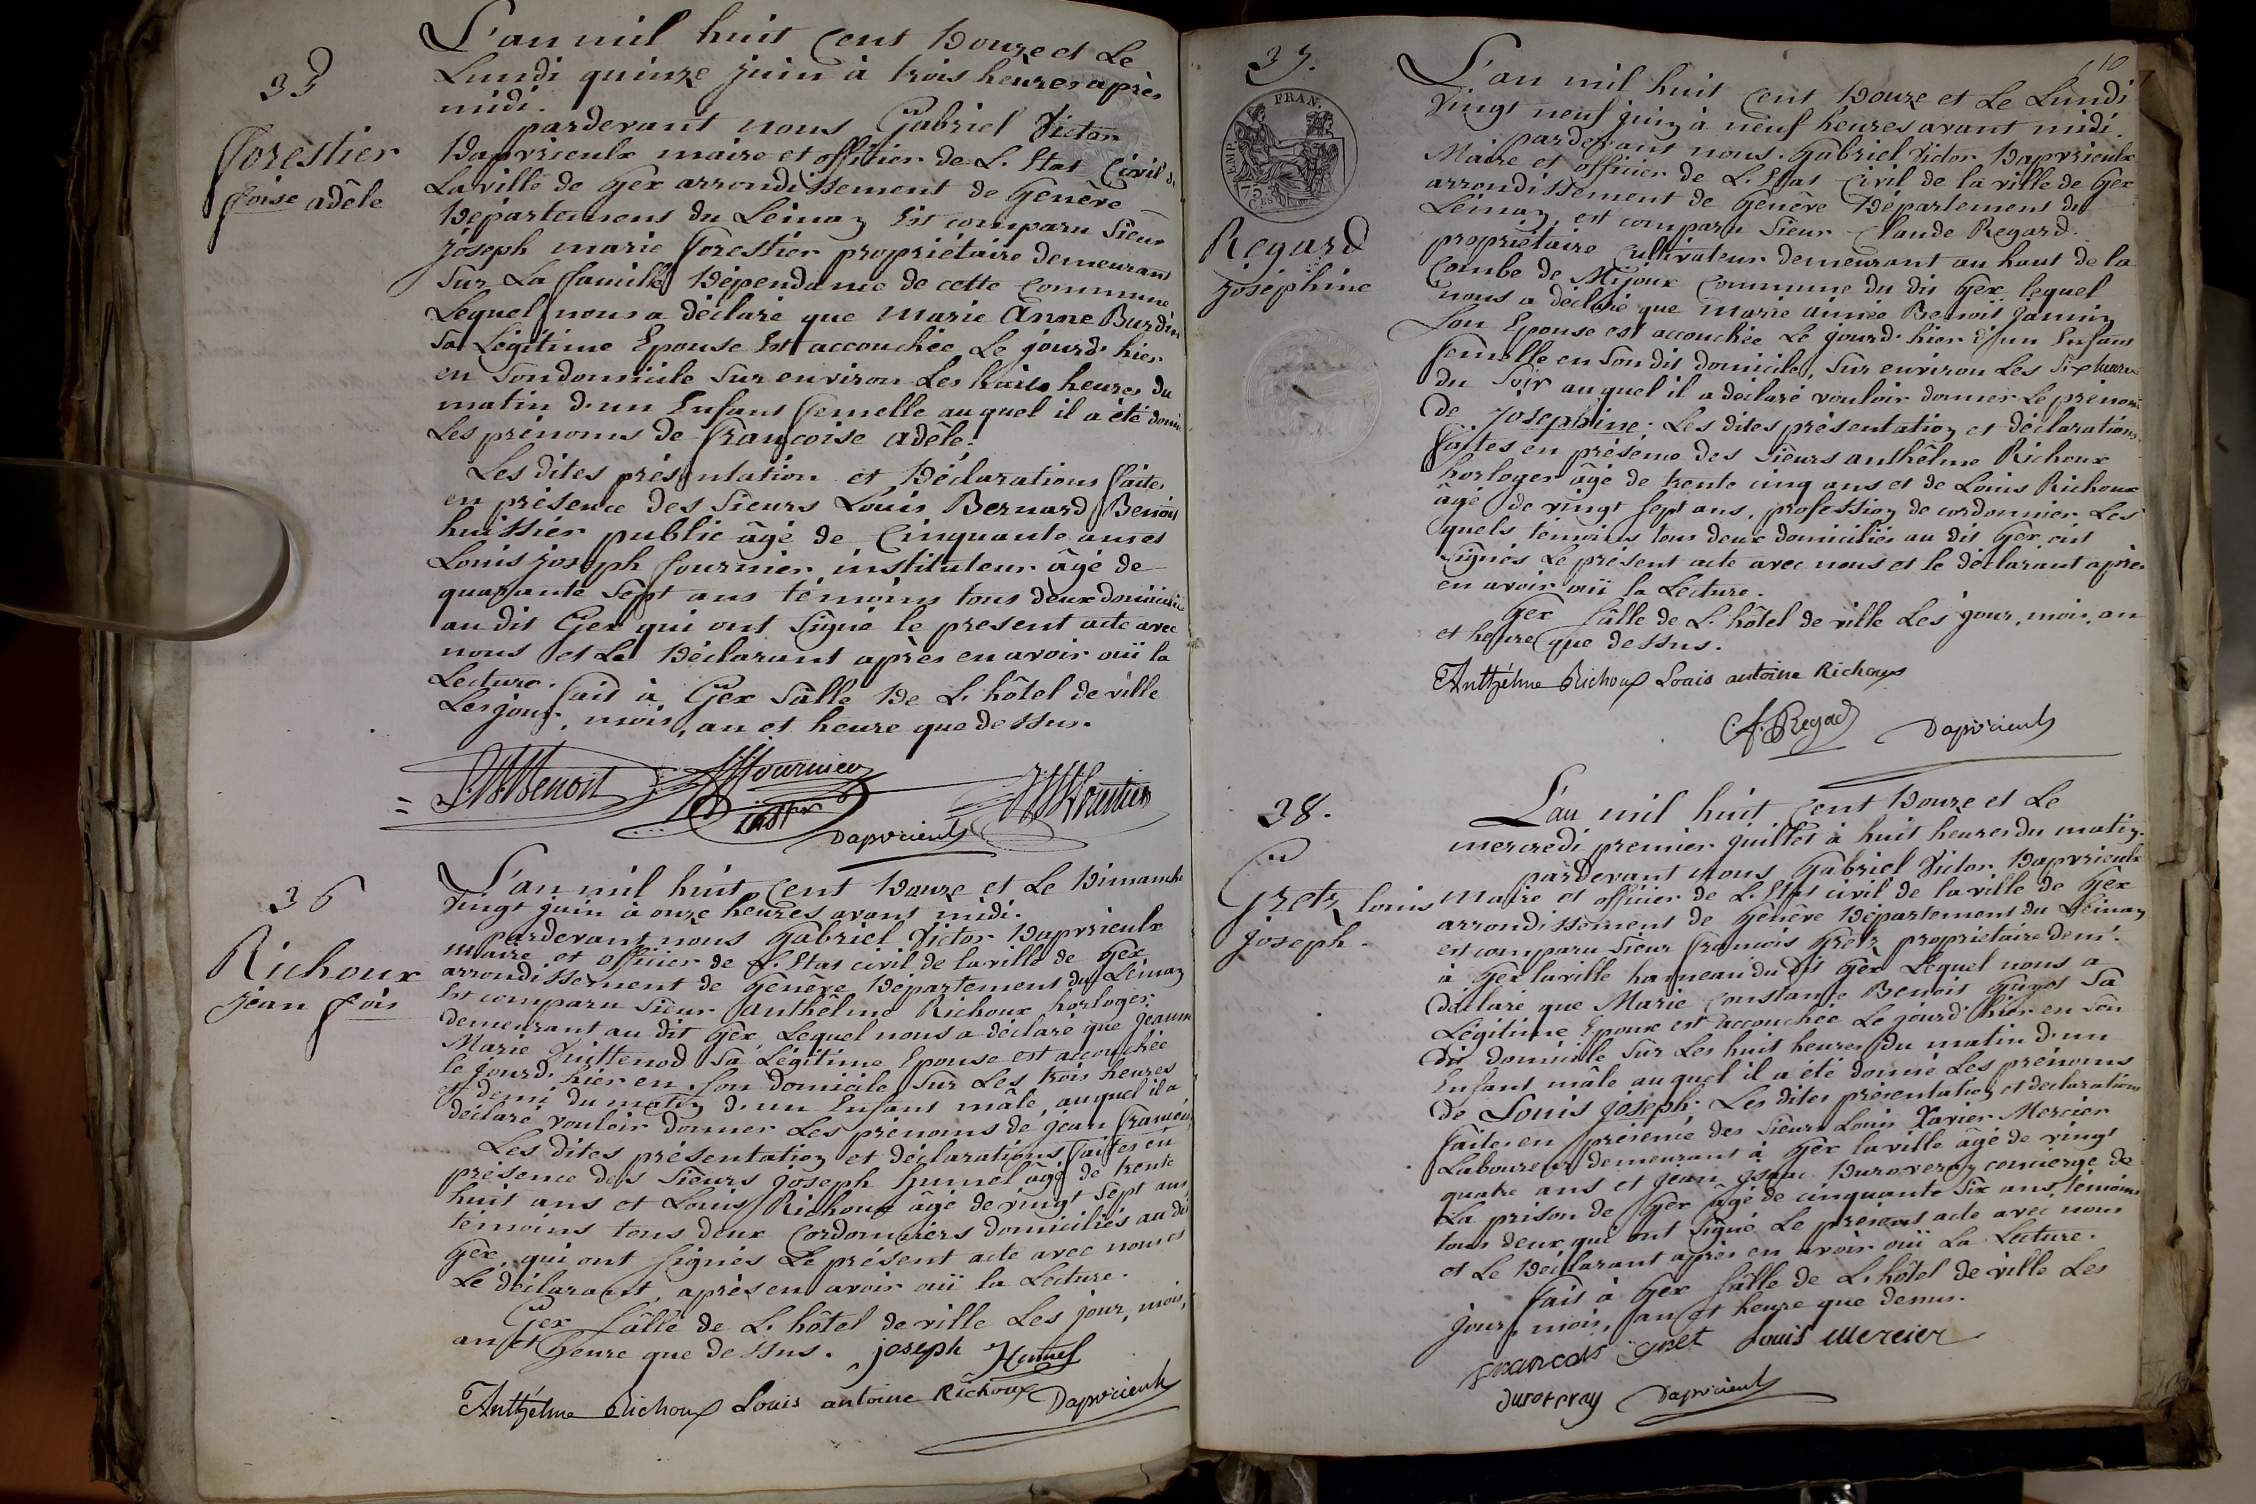 35
Forestier
foise adêle
L'an mil huit Cent Douze et Le
Lundi quinze juin à trois heures après
midi.
pardevant nous Gabriel Victor
Dapvrieulx maire et officier de L. Etat Civil de
La ville de Gex arrondissement de Genêve
Département du Léman Est comparu Sieur
joseph marie Forestier propriétaire demeurant
Sur La faucille Dépendance de cette commune
Lequel nous a déclaré que marie Anne Burdin
Sa Légitime Epouse Est accouchée Le jourd'hier
en Son domicile Sur environ Les trois heures du
matin d'un Enfant femelle auquel il a été donné
Les prénoms de françoise adêle.
Les dites présentation et Déclarations faites
en présence des Sieurs Louis Bernard Benoit
huissier public âgé de Cinquante ans et
Louis joseph fournier instituteur âgé de
quarante Sept ans témoins tous deux domiciliés
au dit Gex qui ont Signé le present acte avec
nous et Le Déclarant après en avoir ouï la
Lecture.
fait à Gex Sâlle De L. hôtel de ville
Les jour, mois, an et heure que dessus.
L. B. Benoit fournier Forestier
Dapvrieulx
36
Richoux
jean fois
L'an mil huit Cent Douze et Le Dimanche
Vingt juin à onze heures avant midi.
pardevant nous Gabriel Victor Dapvrieulx
maire et officier de L. Etat civil de la ville de Gex
arrondissement de Genêve Département du Léman
Est comparu Sieur Anthêlme Richoux horloger
demeurant au dit Gex, Lequel nous a déclaré que jeanne
Marie Quittenod Sa Légitime Epouse est accouchée
le jourd'hier en Son domicile Sur Les trois heures
et demi du matin d'un Enfant mâle, auquel il a
déclaré vouloir donner Les prénoms de jean françois
Les dites présentation et déclarations faites en
présence des Sieurs joseph humel âgé de trente
huit ans et Louis Richoux âgé de vingt Sept ans
temoins tous deux Cordonniers domiciliés au dit
Gex, qui ont Signés Le présent acte avec nous et
Le déclarant, après en avoir ouï la Lecture.
Gex Sâlle de L. hôtel de ville Les jour, mois,
an et heure que dessus. joseph Humel
Anthélme Richoux Louis antoine Richoux Dapvrieulx
10
37.
EMP. FRAN.
75
Regard
joséphine
L'an mil huit Cent Douze et Le Lundi
Vingt neuf juin à neuf heures avant midi.
pardevant nous Gabriel Victor Dapvrieulx
Maire et officier de L. Etat Civil de la ville de Gex
arrondissement de Genêve Département du
Léman, est comparu Sieur Claude Regard
propriétaire Cultivateur demeurant au haut de la
Combe de Mijoux Commune du dit Gex, lequel
nous a déclaré que Marie aimée Benoit Jannin
Son Epouse est accouchée Le jourd'hier d'un Enfant
femelle en Son dit domicile, Sur environ Les Six heures
du Soir auquel il a déclaré vouloir donner Le prénom
de Joséphine. Les dites présentation et déclarations
faites en présence des Sieurs anthêlme Richoux
horloger âgé de trente cinq ans et de Louis Richoux
âgé de vingt Sept ans, profession de cordonnier Les
quels témoins tous deux domiciliés au dit Gex, ont
Signés Le présent acte avec nous et le déclarant après
en avoir ouï la Lecture.
Gex Sâlle de L. hôtel de ville Les jour, mois, an
et heure que dessus.
Anthélme Richoux Louis antoine Richoux
Regad Dapvrieulx
38.
Gretz Louis
joseph.
L'an mil huit Cent Douze et Le
mercredi premier juillet à huit heures du matin.
pardevant nous Gabriel Victor Dapvrieulx
Maire et officier de L. Etat civil de la ville de Gex
arrondissement de Genêve Département du Léman
est comparu Sieur françois Gretz propriétaire demt.
à Gex la ville hameau du dit Gex Lequel nous a
déclaré que Marie Constance Benoit Guyot Sa
Légitime Epouse est accouchée Le jourd'hier en Son
dit domicile Sur Les huit heures du matin d'un
Enfant mâle auquel il a été donné Les prénoms
de Louis joseph. Les dites présentation et déclarations
faites en présence des Sieurs Louis Xavier Mercier
Laboureur demeurant à Gex la ville âgé de vingt
quatre ans et jean isaac Duroveray concierge de
La prison de Gex âgé de cinquante Six ans, témoins
tous deux qui ont Signé Le présent acte avec nous
et Le Déclarant après en avoir ouï La Lecture.
fait à Gex Sâlle de L. hôtel de ville Les
jour, mois, an et heure que dessus.
francois Gret Louis Mercier
Duroveray Dapvrieulx